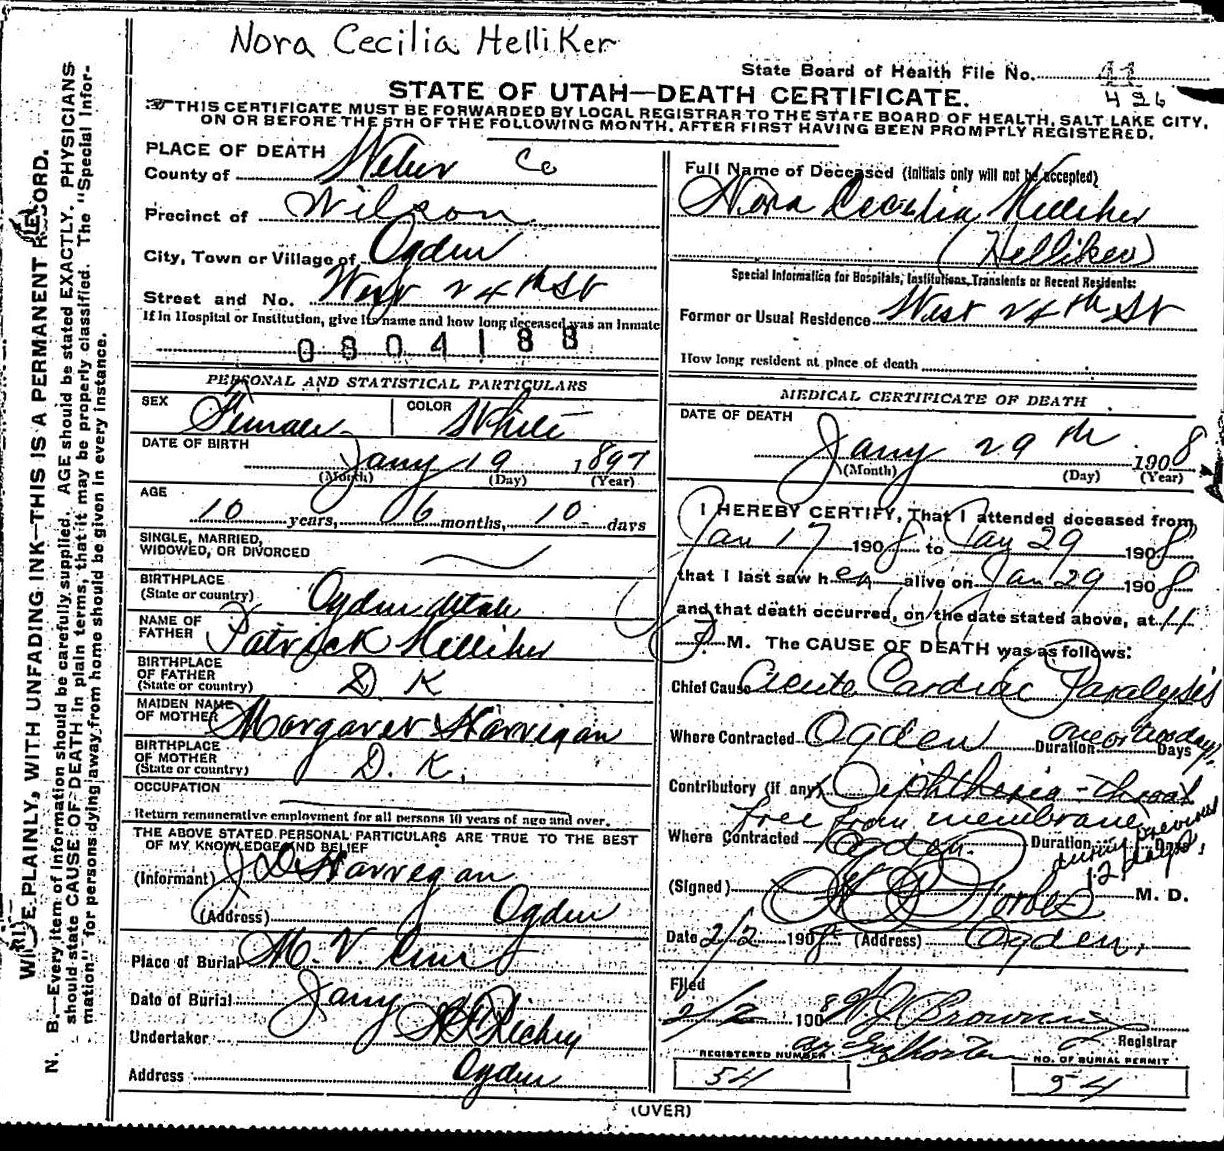 Nora Cecilia Helliker
State Board of Health File No. 41
426
STATE OF UTAH—DEATH CERTIFICATE.
THIS CERTIFICATE MUST BE FORWARDED BY LOCAL REGISTRAR TO THE STATE BOARD OF HEALTH, SALT LAKE CITY,
ON OR BEFORE THE 5TH OF THE FOLLOWING MONTH, AFTER FIRST HAVING BEEN PROMPTLY REGISTERED.
WRITE PLAINLY, WITH UNFADING INK—THIS IS A PERMANENT RECORD.
N. B.—Every item of information should be carefully supplied. AGE should be stated EXACTLY. PHYSICIANS
should state CAUSE OF DEATH in plain terms, that it may be properly classified. The "Special Infor-
mation" for persons dying away from home should be given in every instance.
PLACE OF DEATH
County of Weber Co
Precinct of Wilson
City, Town or Village of Ogden
Street and No. West 24th St
If in Hospital or Institution, give its name and how long deceased was an inmate
0804188
PERSONAL AND STATISTICAL PARTICULARS
SEX Female COLOR White
DATE OF BIRTH
Jany 19 1897
(Month) (Day) (Year)
AGE
10 years, 6 months, 10 days
SINGLE, MARRIED,
WIDOWED, OR DIVORCED
BIRTHPLACE
(State or country) Ogden Utah
NAME OF
FATHER Patrick Helliher
BIRTHPLACE
OF FATHER
(State or country) D K
MAIDEN NAME
OF MOTHER Margaret Harrigan
BIRTHPLACE
OF MOTHER
(State or country) D. K.
OCCUPATION
Return remunerative employment for all persons 10 years of age and over.
THE ABOVE STATED PERSONAL PARTICULARS ARE TRUE TO THE BEST
OF MY KNOWLEDGE AND BELIEF
(Informant) J D Harregan
(Address) Ogden
Place of Burial M. V. Cem
Date of Burial Jany
Undertaker Richey
Address Ogden
Full Name of Deceased (Initials only will not be accepted)
Nora Cecilia Helliher
(Helliker)
Special Information for Hospitals, Institutions, Transients or Recent Residents:
Former or Usual Residence West 24th St
How long resident at place of death
MEDICAL CERTIFICATE OF DEATH
DATE OF DEATH
Jany 29th 1908
(Month) (Day) (Year)
I HEREBY CERTIFY, That I attended deceased from
Jan 17 1908 to Jan 29 1908
that I last saw her alive on Jan 29 1908
and that death occurred, on the date stated above, at 11
P M. The CAUSE OF DEATH was as follows:
Chief Cause Acute Cardiac Paralysis
Where Contracted Ogden Duration one or two days Days
Contributory (if any) Diphtheria - throat
free from membrane
Where Contracted Ogden. Duration during previous 12 days Days
(Signed) Forbes M. D.
Date 2/2 1908 (Address) Ogden,
Filed
2/2 1908 W J Browning
Registrar
REGISTERED NUMBER NO. OF BURIAL PERMIT
54 54
(OVER)